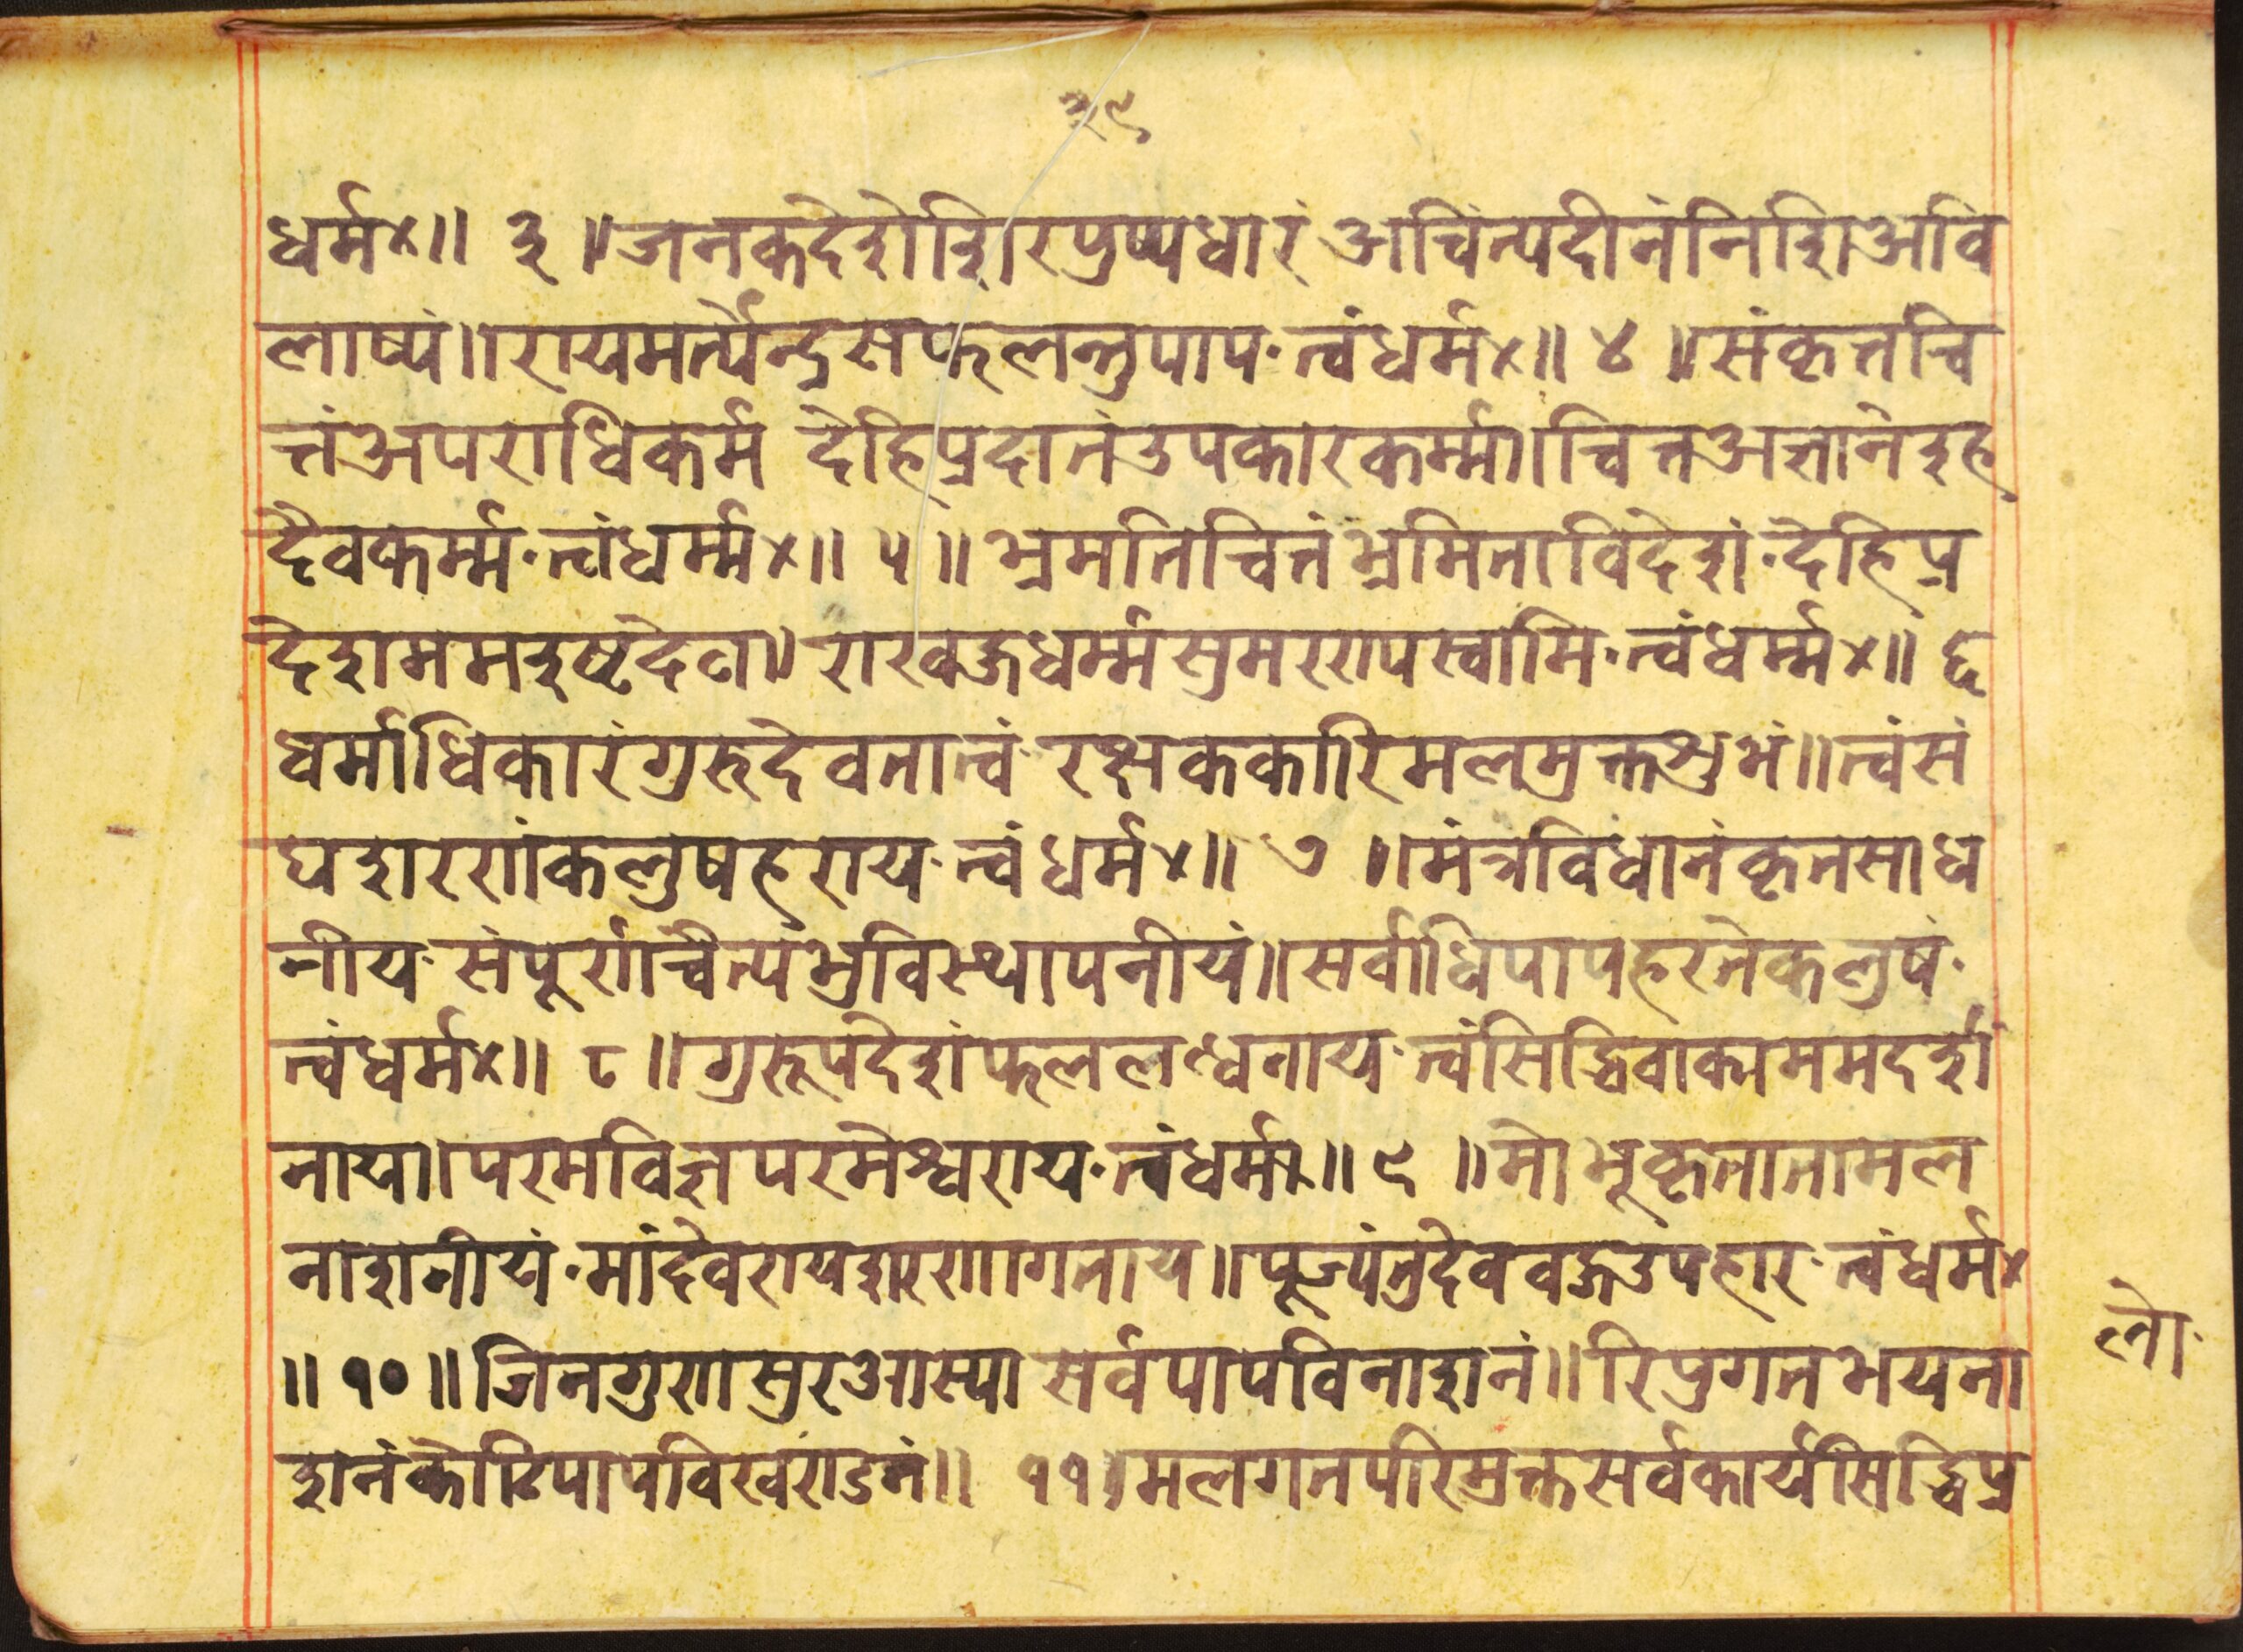 २९
धर्म४॥ ३ ॥जनकदेशेशिरपुष्पधारं अचिंत्यदीनंनिशिअवि
लाष्यं॥रायमर्त्येन्द्रसफलन्तुपाप·त्वंधर्म४॥ ४ ॥संकृत्तचि
त्तंअपराधिकर्म देहिप्रदानंउपकारकर्म्म॥चित्तअज्ञानेदुह
दैवकर्म्म·त्वंधर्म्म४॥ ५ ॥भ्रमतिचित्तंभ्रमिताविदेशं·देहिप्र
देशाममदुष्टदेण॥राखबज्रधर्म्मसुमरणपस्वामि·त्वंधर्म्म४॥ ६
धर्माधिकारंगुरुदेवतात्वं·रक्षककारिमलमुक्तशुभं॥त्वंसं
घशरणंकलुषहराय·त्वंधर्म४॥ ७ ॥मंत्रविधानंकृतसाध
नीय·संपूर्णचैत्यंभुविस्थापनीयं॥सर्वाधिपापहरनेकलुषं·
त्वंधर्म४॥ ८ ॥गुरूपदेशंफललब्धनाय·त्वंसिद्धिवाकाममदर्श
नाय॥परमविज्ञपरमेश्वराय·त्वंधर्म४॥ ९ ॥मोभूकृतानामल
नाशनीयं·मांदेवरायशरणागताय॥पूज्यंतुदेवबज्रउपहार·त्वंधर्म४
॥१०॥जिनगुणसुरआस्या सर्वपापविनाशनं॥रिपुगनभयना
शनंकोटिपापविखण्डनं॥ ११॥मलगनपरिमुक्तसर्वकार्यसिद्धिप्र
लो·